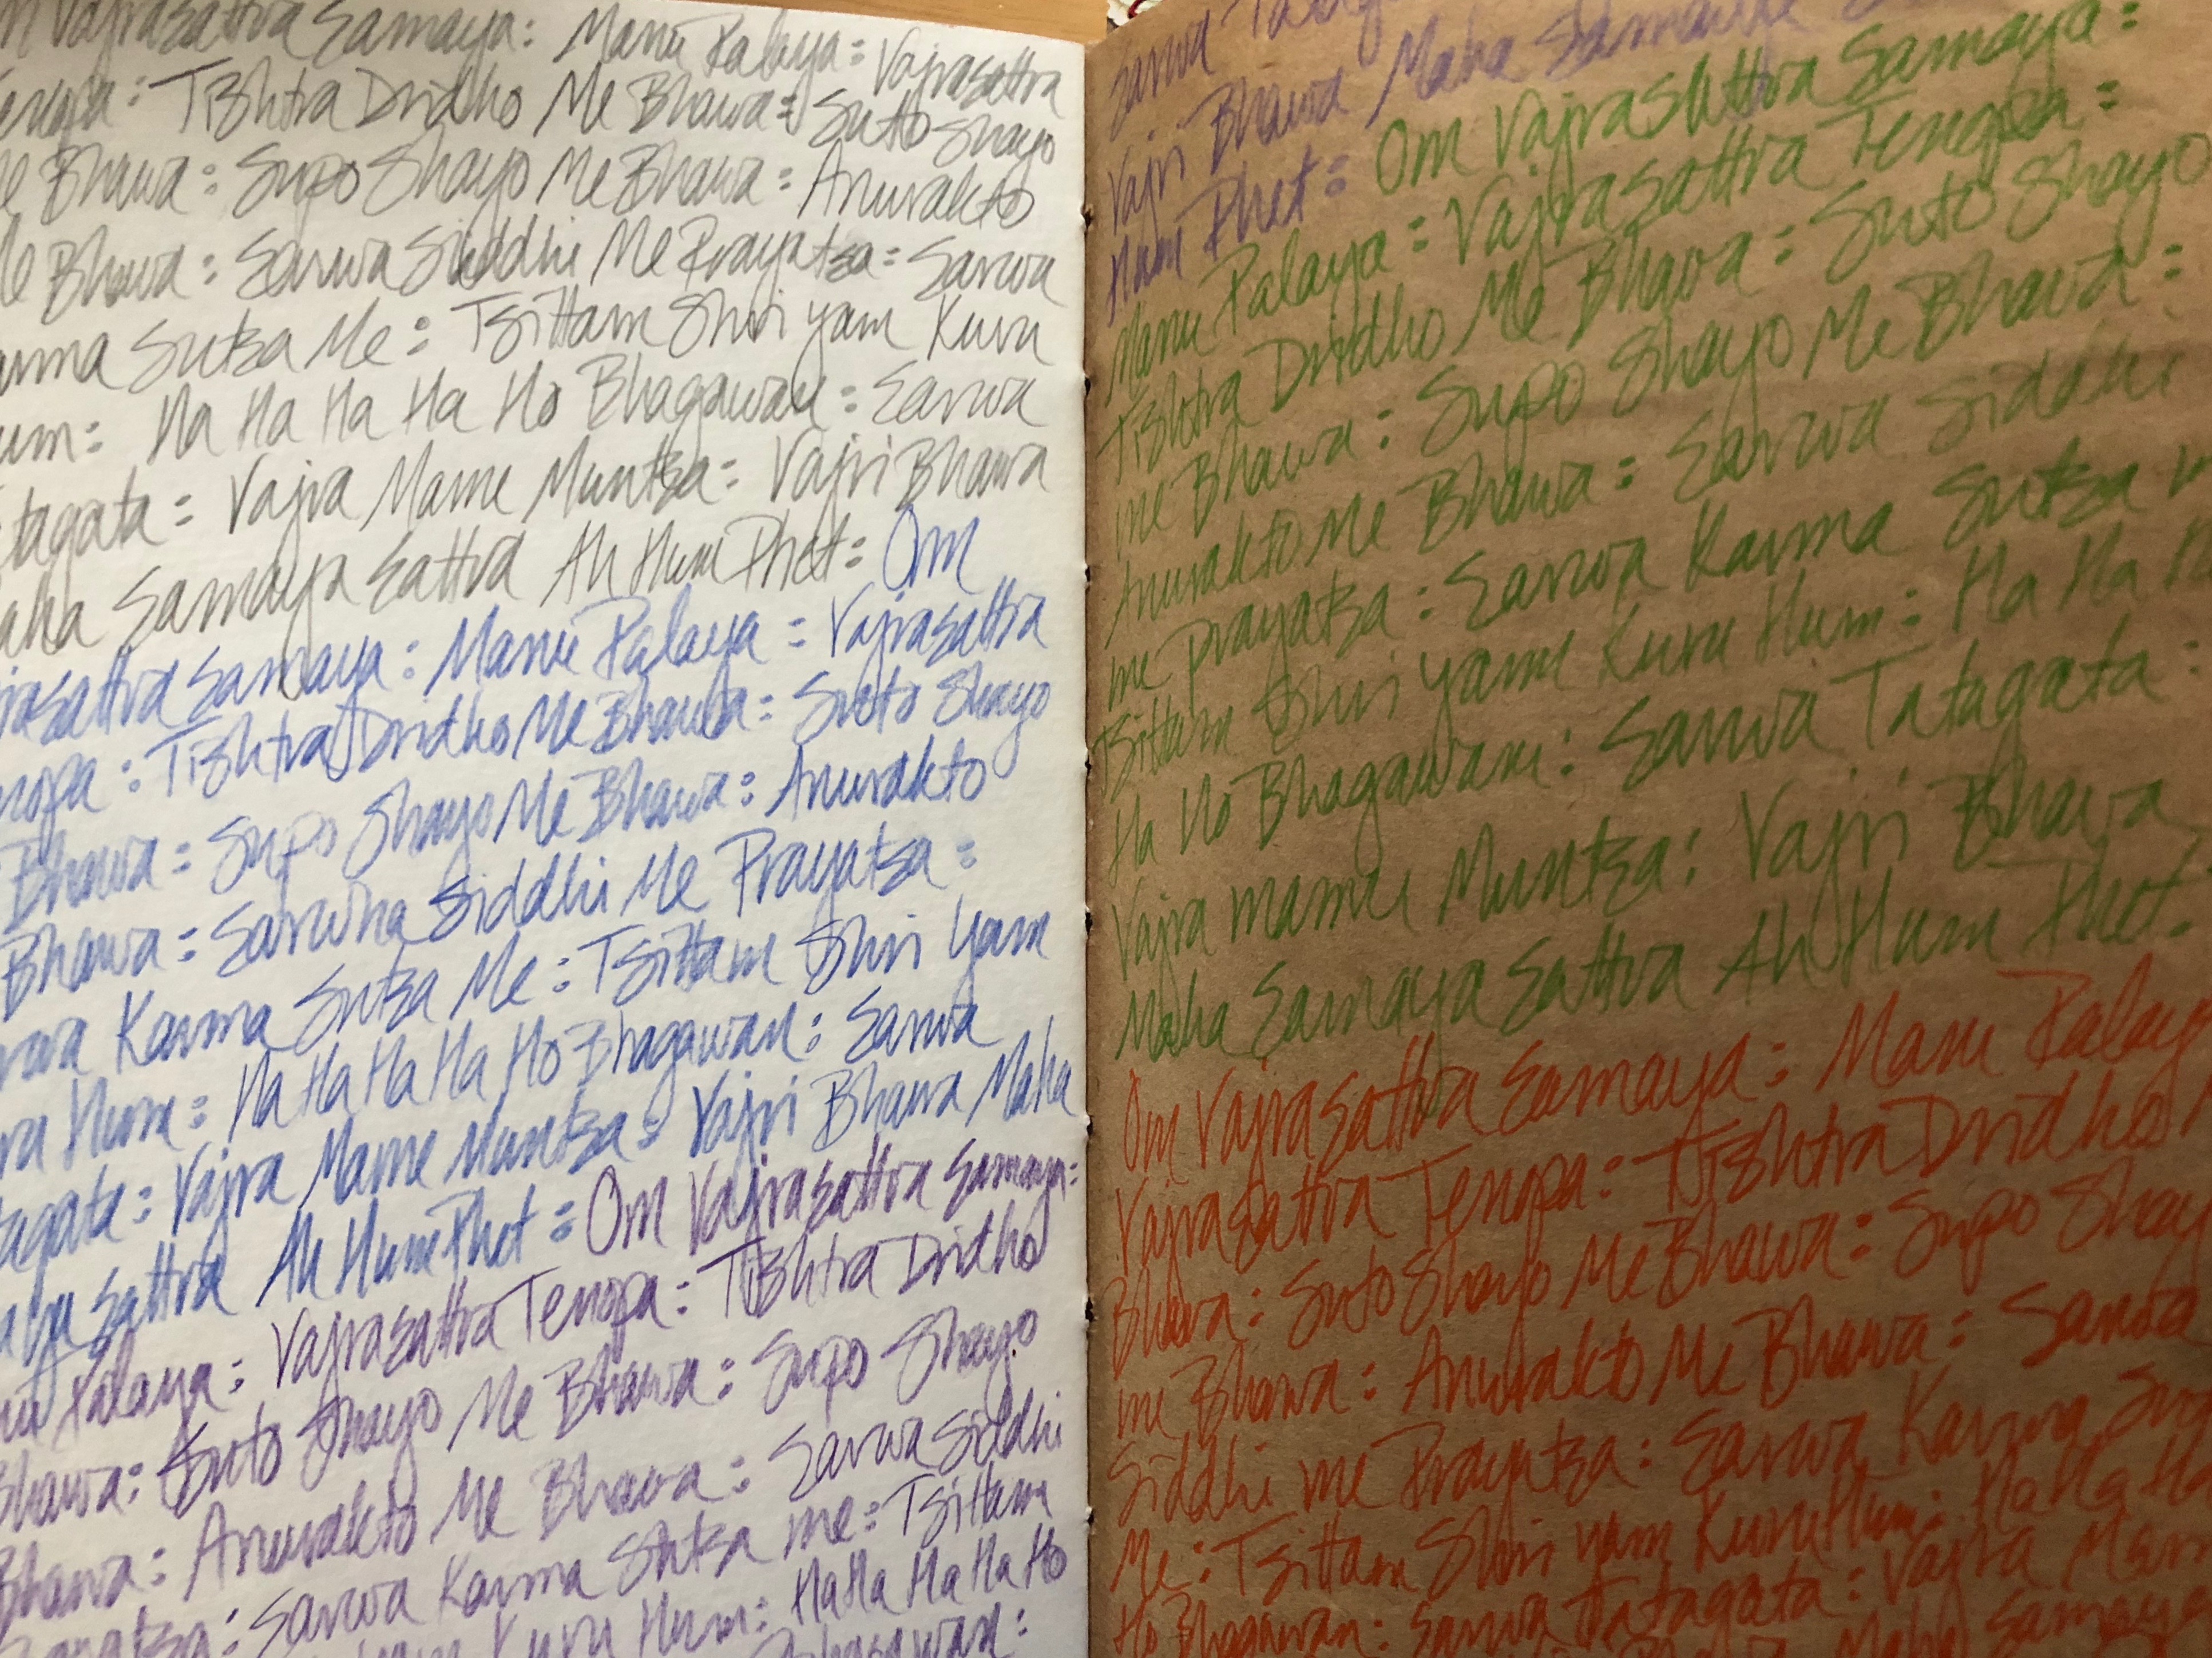 Vajrasattva Samaya: Manu Palaya: Vajrasattra
Tenopa: Tishtra Dridho Me Bhawa: Suto Shayo
Me Bhawa: Supo Shayo Me Bhawa: Anurakto
Me Bhawa: Sarwa Siddhi Me Prayatsa: Sarwa
Sutsa Me: Tsittam Shri yam Kuru
Ha Ha Ha Ha Ho Bhagawan: Sarwa
Vajra Mame Muntsa: Vajri Bhawa
Samaya Sattva Ah Hum Phet: Om
Samaya: Manu Palaya: Vajrasattva
: Tishtra Dridho Me Bhawa: Suto Shayo
Bhawa: Supo Shayo Me Bhawa: Anurakto
Bhawa: Sarwha Siddhi Me Prayatsa:
Karma Sutsa Me: Tsittam Shri Yam
Hum: Ha Ha Ha Ha Ho Bhagawan: Sarwa
: Vajra Mame Muntsa: Vajri Bhawa Maha
Sattva Ah Hum Phet: Om Vajrasattva Samaya:
Palaya: Vajrasattva Tenopa: Tishtra Dridho
Bhawa: Suto Shayo Me Bhawa: Supo Shayo
Bhawa: Anurakto Me Bhawa: Sarwa Siddhi
: Sarwa Karma Sutsa me: Tsittam
Kuru Hum: Ha Ha Ha Ha Ho
Sarwa
Vajri Bhawa Maha Samaya
Hum Phet: Om Vajrasattva Samaya:
Manu Palaya: Vajrasattva Tenopa:
Tishtra Dridho Me Bhawa: Suto Shayo
me Bhawa: Supo Shayo Me Bhawa:
Anurakto Me Bhawa: Sarwa Siddhi
me prayatsa: Sarwa Karma Sutsa
Tsittam Shri yam Kuru Hum: Ha Ha
Ha Ho Bhagawan: Sarwa Tatagata:
Vajra mame Muntsa: Vajri Bhawa
Maha Samaya Sattva Ah Hum Phet:
Om Vajrasattva Samaya: Manu Palay
Vajrasattva Tenopa: Tishtra Dridho
Bhawa: Suto Shayo Me Bhawa: Supo Shay
me Bhawa: Anurakto Me Bhawa: Sarwa
Siddhi me Prayatsa: Sarwa Karma
Me: Tsittam Shri yam Kuru Hum: Ha Ha Ha
Ho Bhagawan: Sarwa Tatagata: Vajra
Maha Samaya